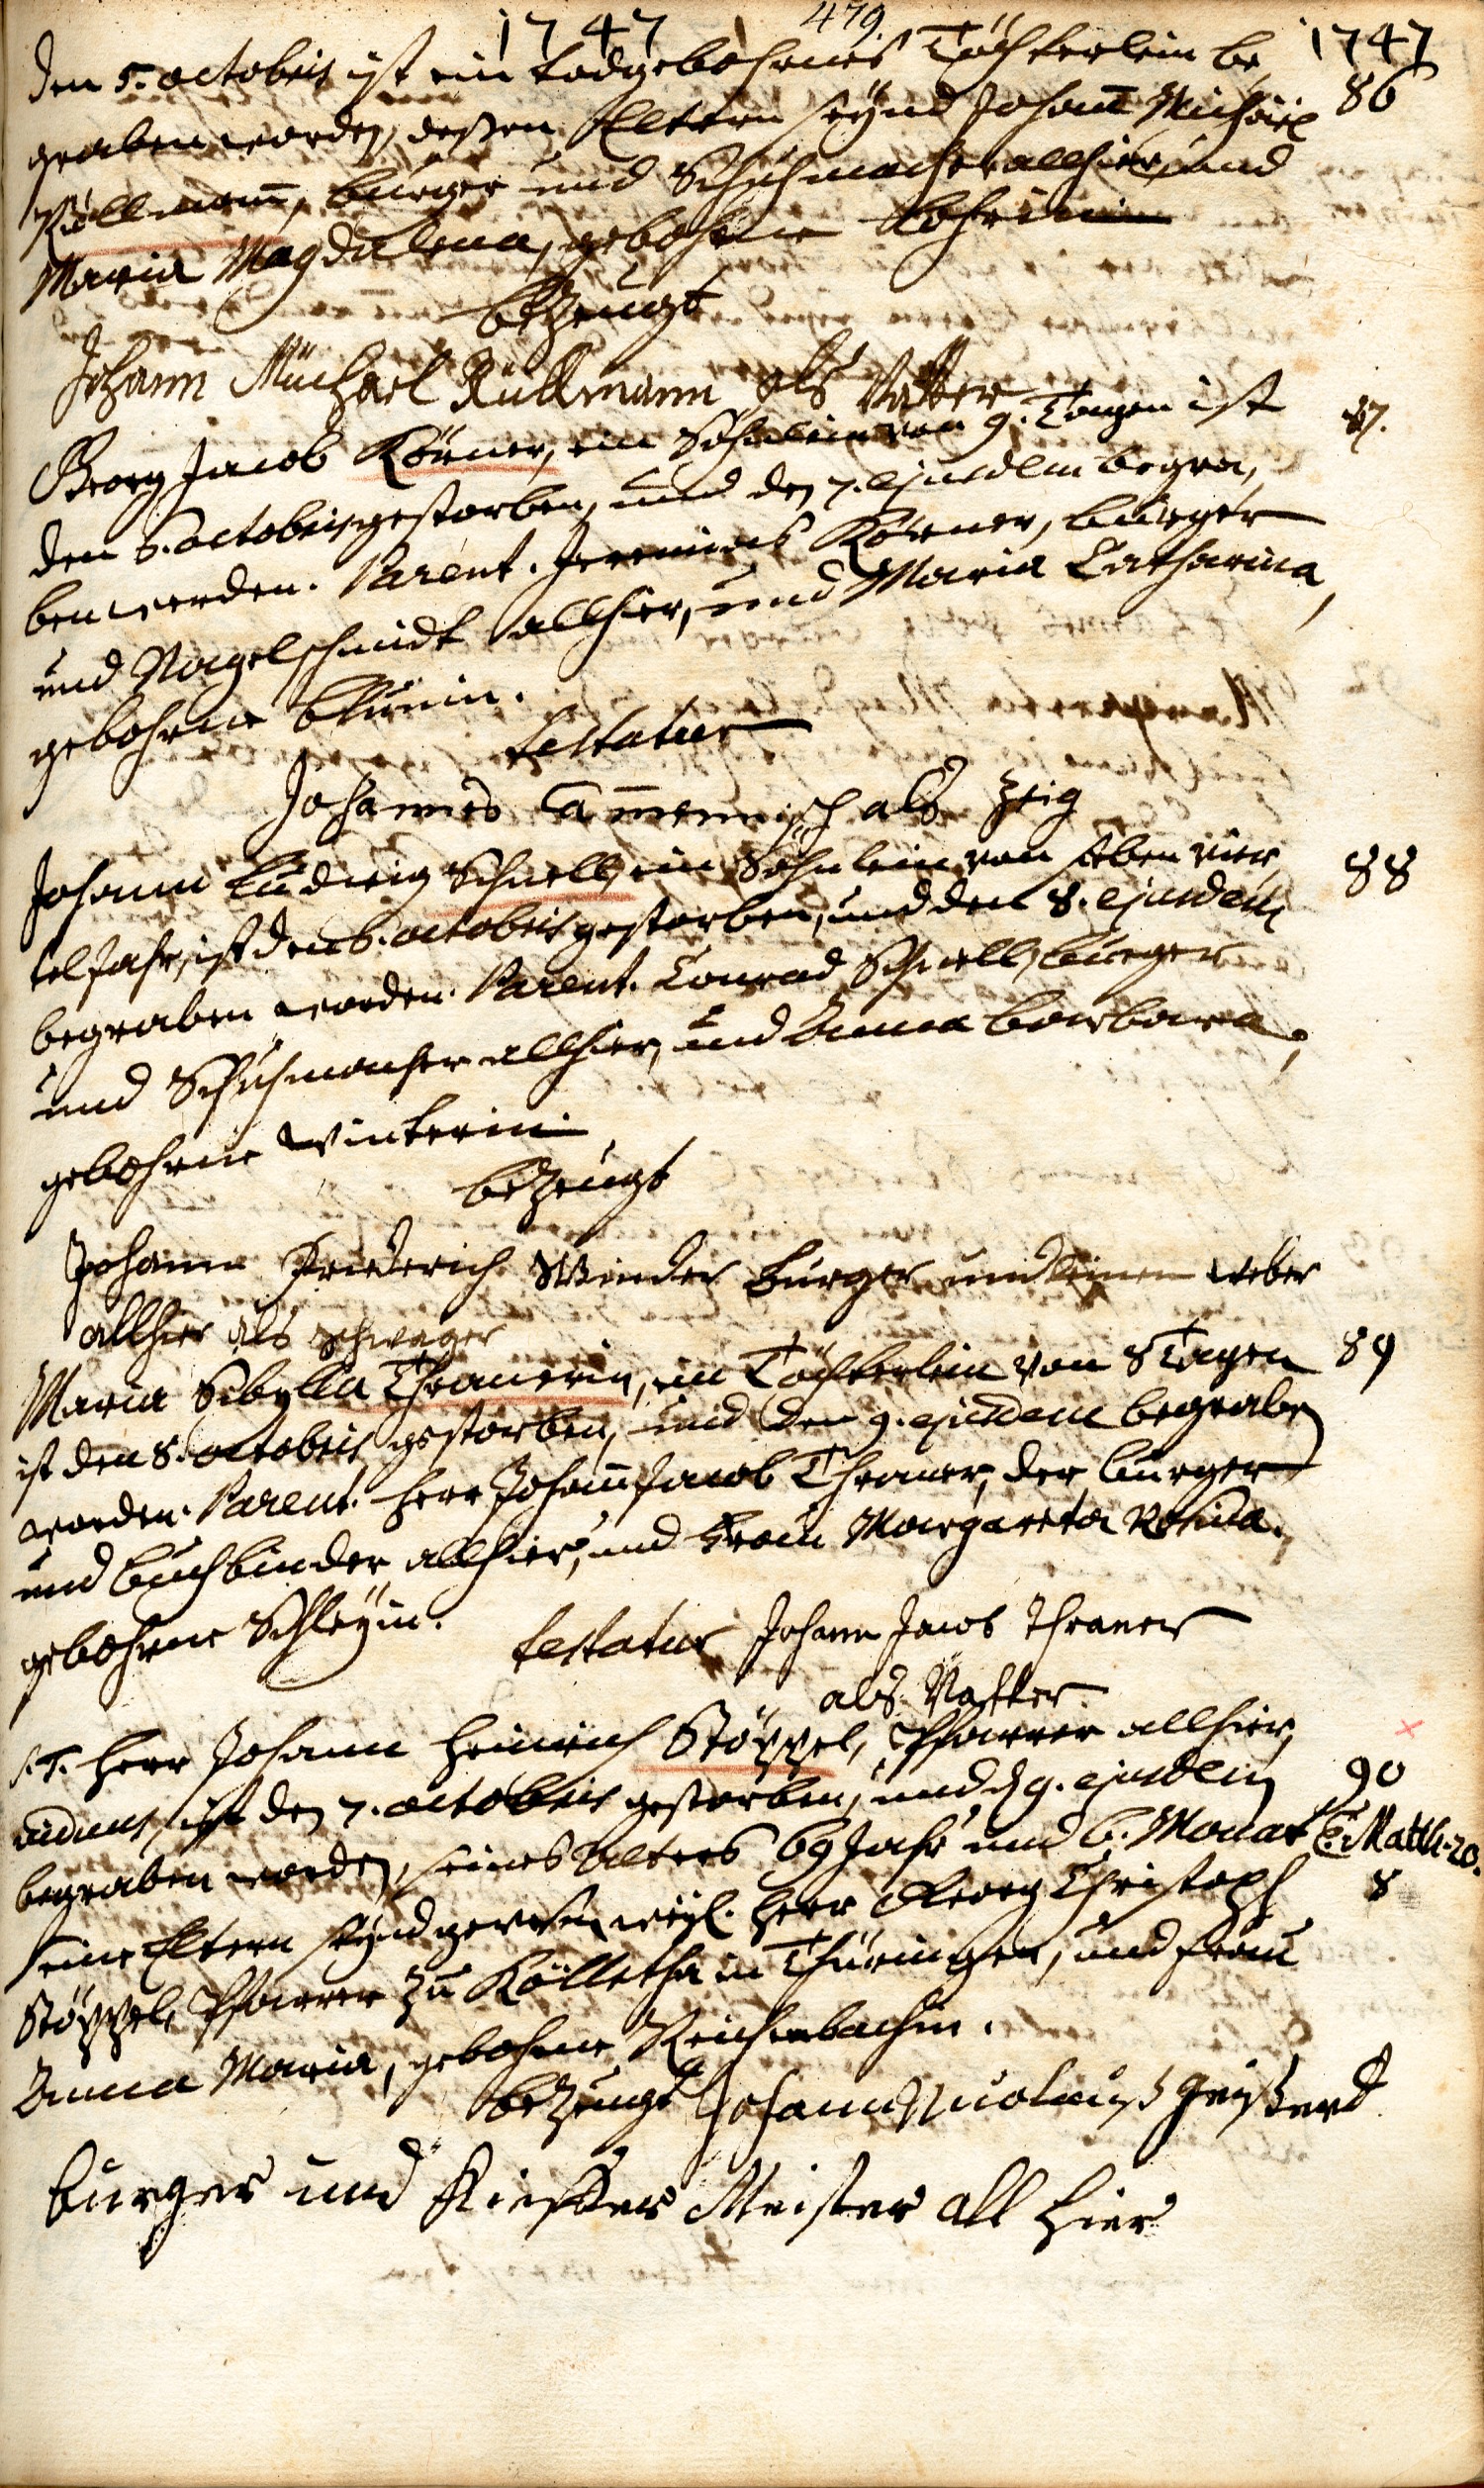 479.
1747 1747
den 5. octobris ist ein todgebohrnes Töchterlein be, 86
graben worden, deßen Eltern seynd Johañ Michael
Rüllmañ, burger und Schuhmacher allhier, und
Maria Magdalena, gebohrne
bezeugt
Johann Michael Rüllmann als Vatter
Georg Jacob Körner, ein Söhnlein von 9. Tagen ist 87.
den 6. octobris gestorben, und den 7. ejusdem begra,
ben worden. Parent. Jeremias Körner, burger
und Nagelschmidt allhier, und Maria Catharina,
gebohrne
testatur
Johannes als Zeig
Johann Ludwig Schnell, ein Söhnlein von sieben vier 88
tel Jahr, ist den 6. octobris gestorben, und den 8. ejusdem
begraben worden. Parent. Conrad Schnell, burger
und Schuhmacher allhier, und Anna barbara,
gebohrne Winterin
bezeugt
Johann Friederich Winder burger und leinen weber
allhier als schwager
Maria Sibylla Thranerin, ein Töchterlein von 8 Tagen 89
ist den 8. octobris gestorben, und den 9. ejusdem begraben
worden. Parent. Herr Johañ Jacob Thraner, der burger
und buchbinder allhier, und Frau Margareta Rosina,
gebohrne Schleyin.
testatur Johann Jacob Thraner
als Vatter
S. T. Herr Johann Heinrich Stöppel, Pfarrer allhier,
ist den 7. octobris gestorben, und d. 9. ejusdem 90
begraben worden, seines Alters 69 Jahr und 6. Monat Matth. 20.
seine Eltern seynd gewesen weyl. Herr Georg Christoph 8
Stöppel, Pfarrer zu Kölletha in Thüringen, und Frau
Anna Maria, gebohrne Reichenbachin.
bezeugt Johann Nicolauß
burger und Kieffer Meister all hier